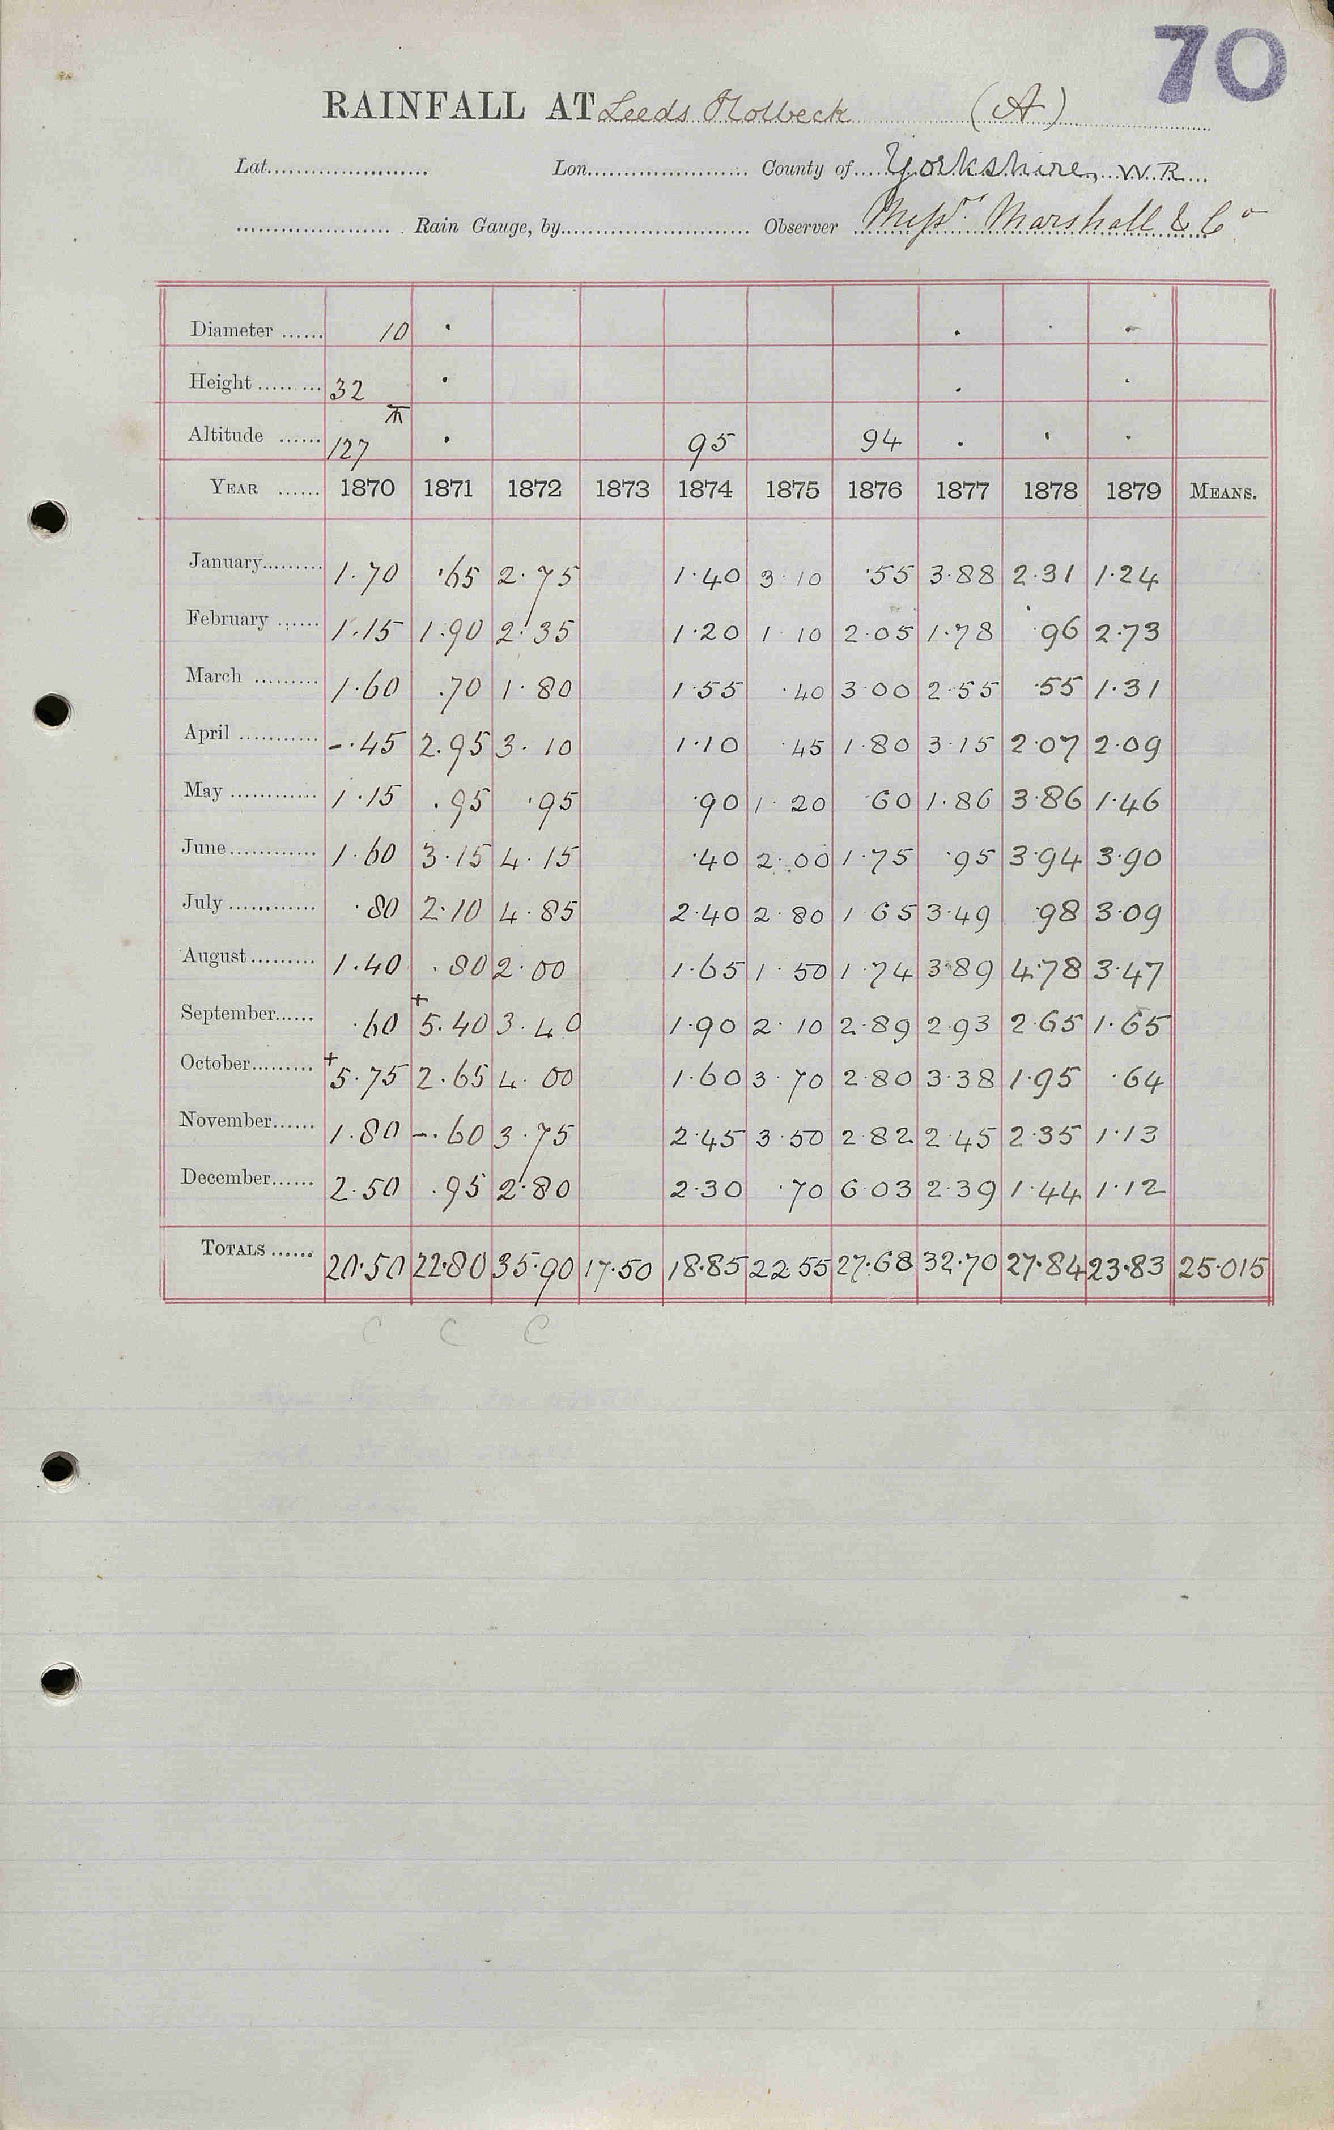 70
RAINFALL AT Leeds Holbeck (A)
Lat. Lon. County of Yorkshire, W.R.
Rain Gauge, by Observer Messrs. Marshall & Co
Diameter 10
Height 32
Altitude 127 95 94
YEAR 1870 1871 1872 1873 1874 1875 1876 1877 1878 1879 MEANS.
January 1.70 .65 2.75 1.40 3.10 .55 3.88 2.31 1.24
February 1.15 1.90 2.35 1.20 1 10 2.05 1.78 .96 2.73
March 1.60 .70 1.80 1.55 .40 3.00 2.55 .55 1.31
April -.45 2.95 3.10 1.10 45 1.80 3.15 2.07 2.09
May 1.15 .95 .95 .90 1.20 60 1.86 3.86 1.46
June 1.60 3.15 4.15 .40 2.00 1.75 .95 3.94 3.90
July .80 2.10 4.85 2.40 2 80 1 65 3.49 98 3.09
August 1.40 .80 2.00 1.65 1.50 1.74 3.89 4.78 3.47
September .60 +5.40 3.40 1.90 2.10 2.89 2.93 2.65 1.65
October +5.75 2.65 4.00 1.60 3.70 2.80 3.38 1.95 .64
November 1.80 -.60 3.75 2.45 3.50 2.82 2.45 2.35 1.13
December 2.50 .95 2.80 2.30 .70 6 03 2.39 1.44 1.12
TOTALS 20.50 22.80 35.90 17.50 18.85 22.55 27.68 32.70 27.84 23.83 25.015
C C C